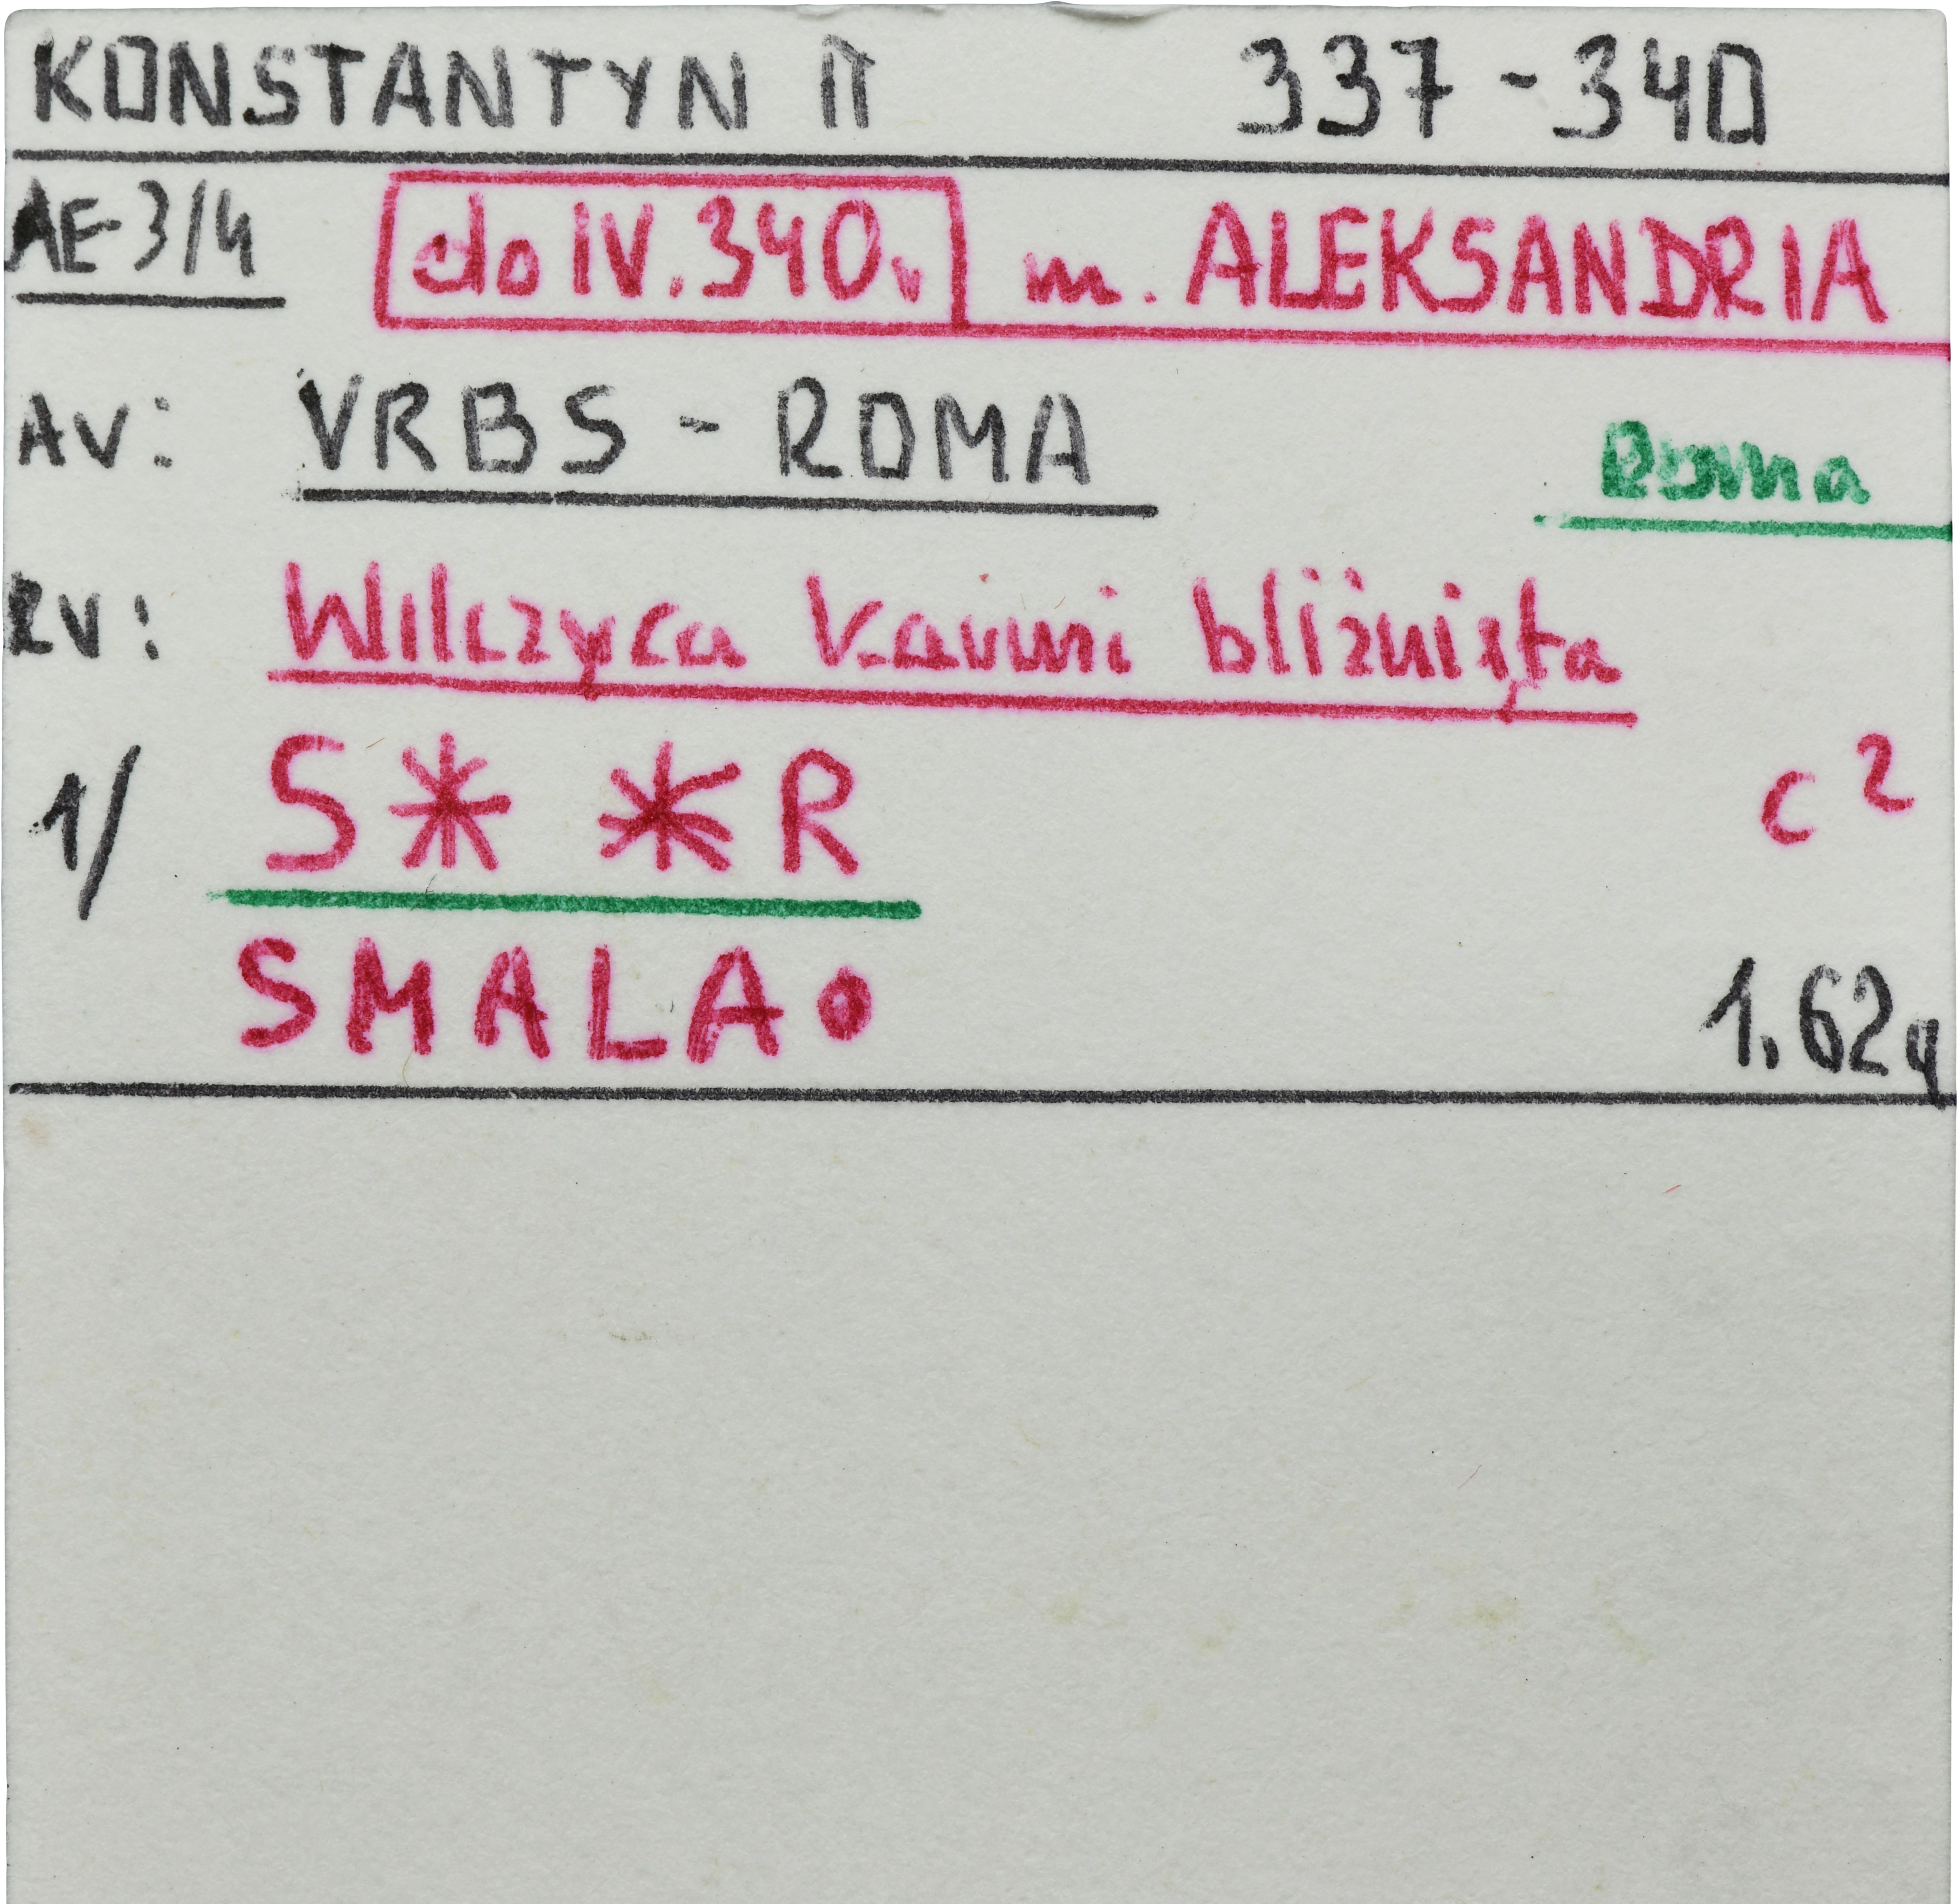 KONSTANTYN II 337-340
AE 3/4 do IV.340r m. ALEKSANDRIA
AV: VRBS - ROMA Roma
RV: Wilczyca karmi bliźnięta
1/ S✳ ✳R c²
SMALA• 1.62g